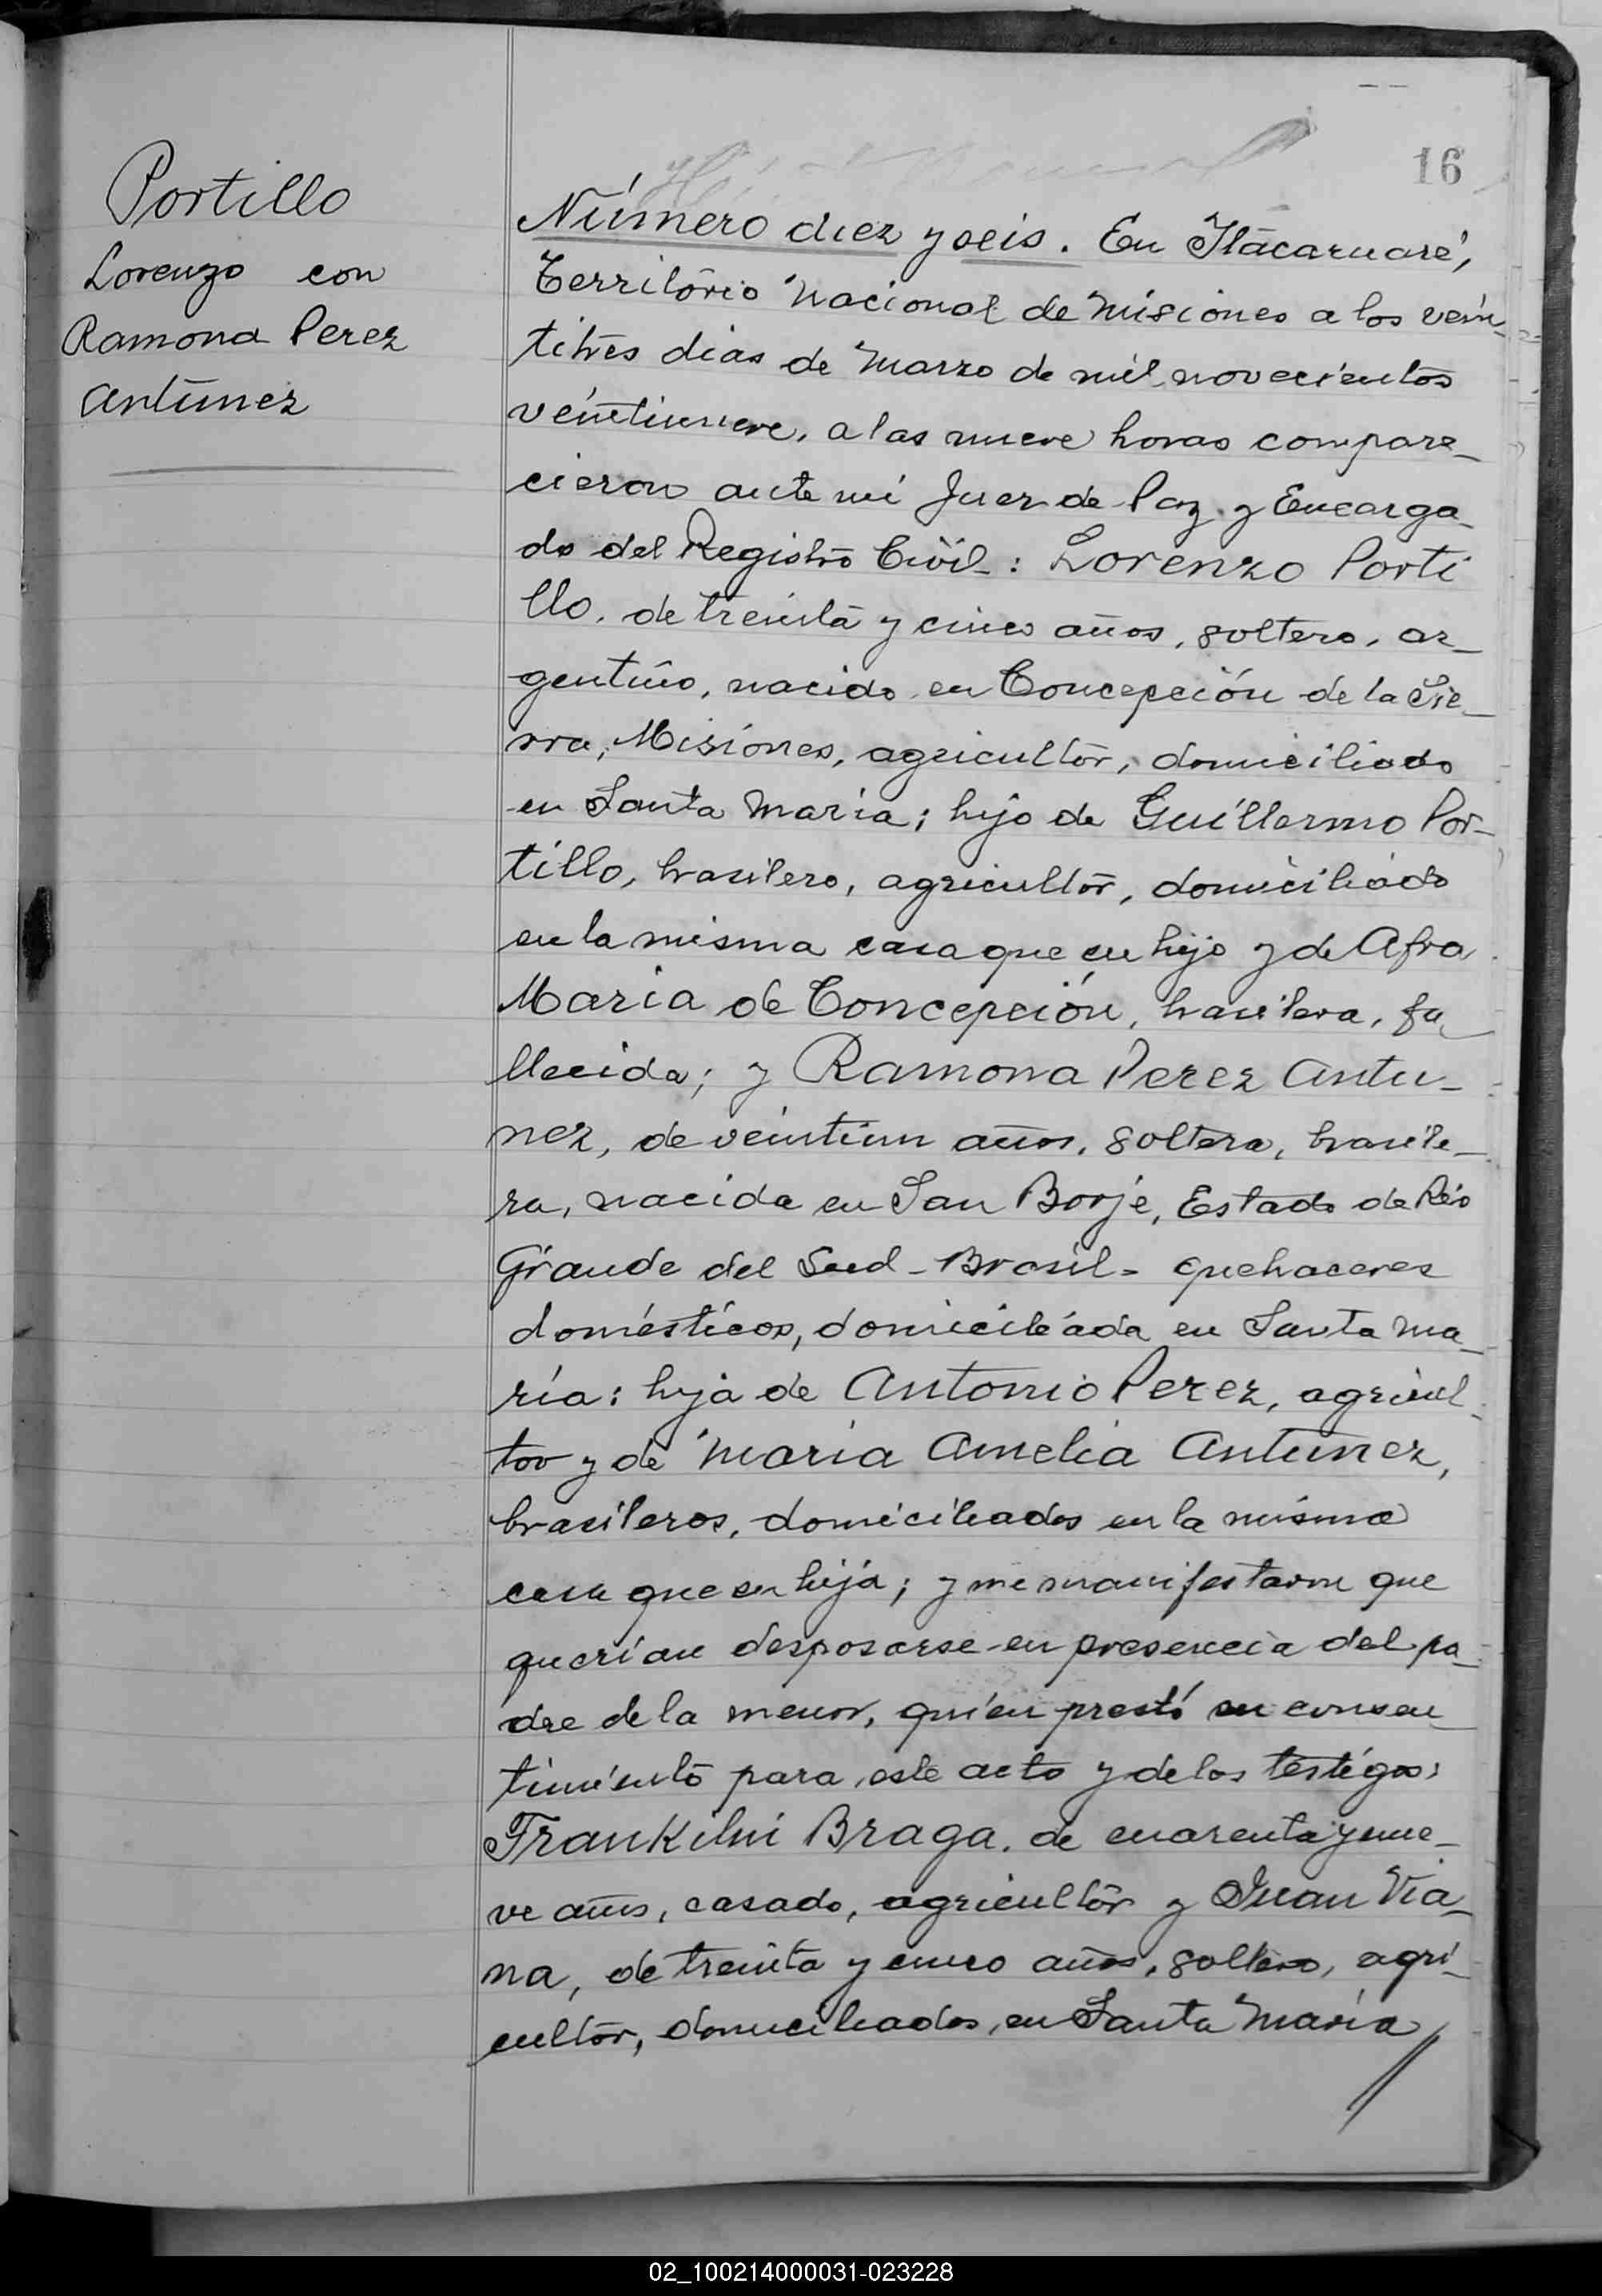 16
Portillo
Lorenzo con
Ramona Perez
Antúnez
Número diez y seis. En Itácaruaré,
Território Nacional de Misiones a los vein_
titrés dias de Marzo de mil novecientos
veintinueve, a las nueve horas compare_
cieron ante mi Juez de Paz y Encarga_
do del Registro Civil: Lorenzo Porti
llo, de treinta y cinco años, soltero, ar_
gentino, nacido en Concepción de la Sie_
rra, Misiones, agricultor, domiciliado
en Santa Maria; hijo de Guillermo Por_
tillo, brasilero, agricultor, domiciliado
en la misma casa que su hijo y de Afra
Maria de Concepción, brasilera, fa_
llecida; y Ramona Perez Antu_
nez, de veintiun años, soltera, brasile_
ra, nacida en San Borje, Estado de Rio
Grande del Sud - Brasil - quehaceres
domésticos, domiciliada en Santa Ma_
ría: hija de Antonio Perez, agricul_
tor y de Maria Amelia Antunez,
brasileros, domiciliados en la misma
casa que su hija; y me manifestaron que
querían desposarse en presencia del pa_
dre de la menor, quién prestó su consen_
timiento para este acto y de los testigos:
Franklini Braga, de cuarenta y nue_
ve años, casado, agricultor y Juan Via_
na, de treinta y cinco años, soltero, agri_
cultor, domiciliados en Santa Maria
02_100214000031-023228